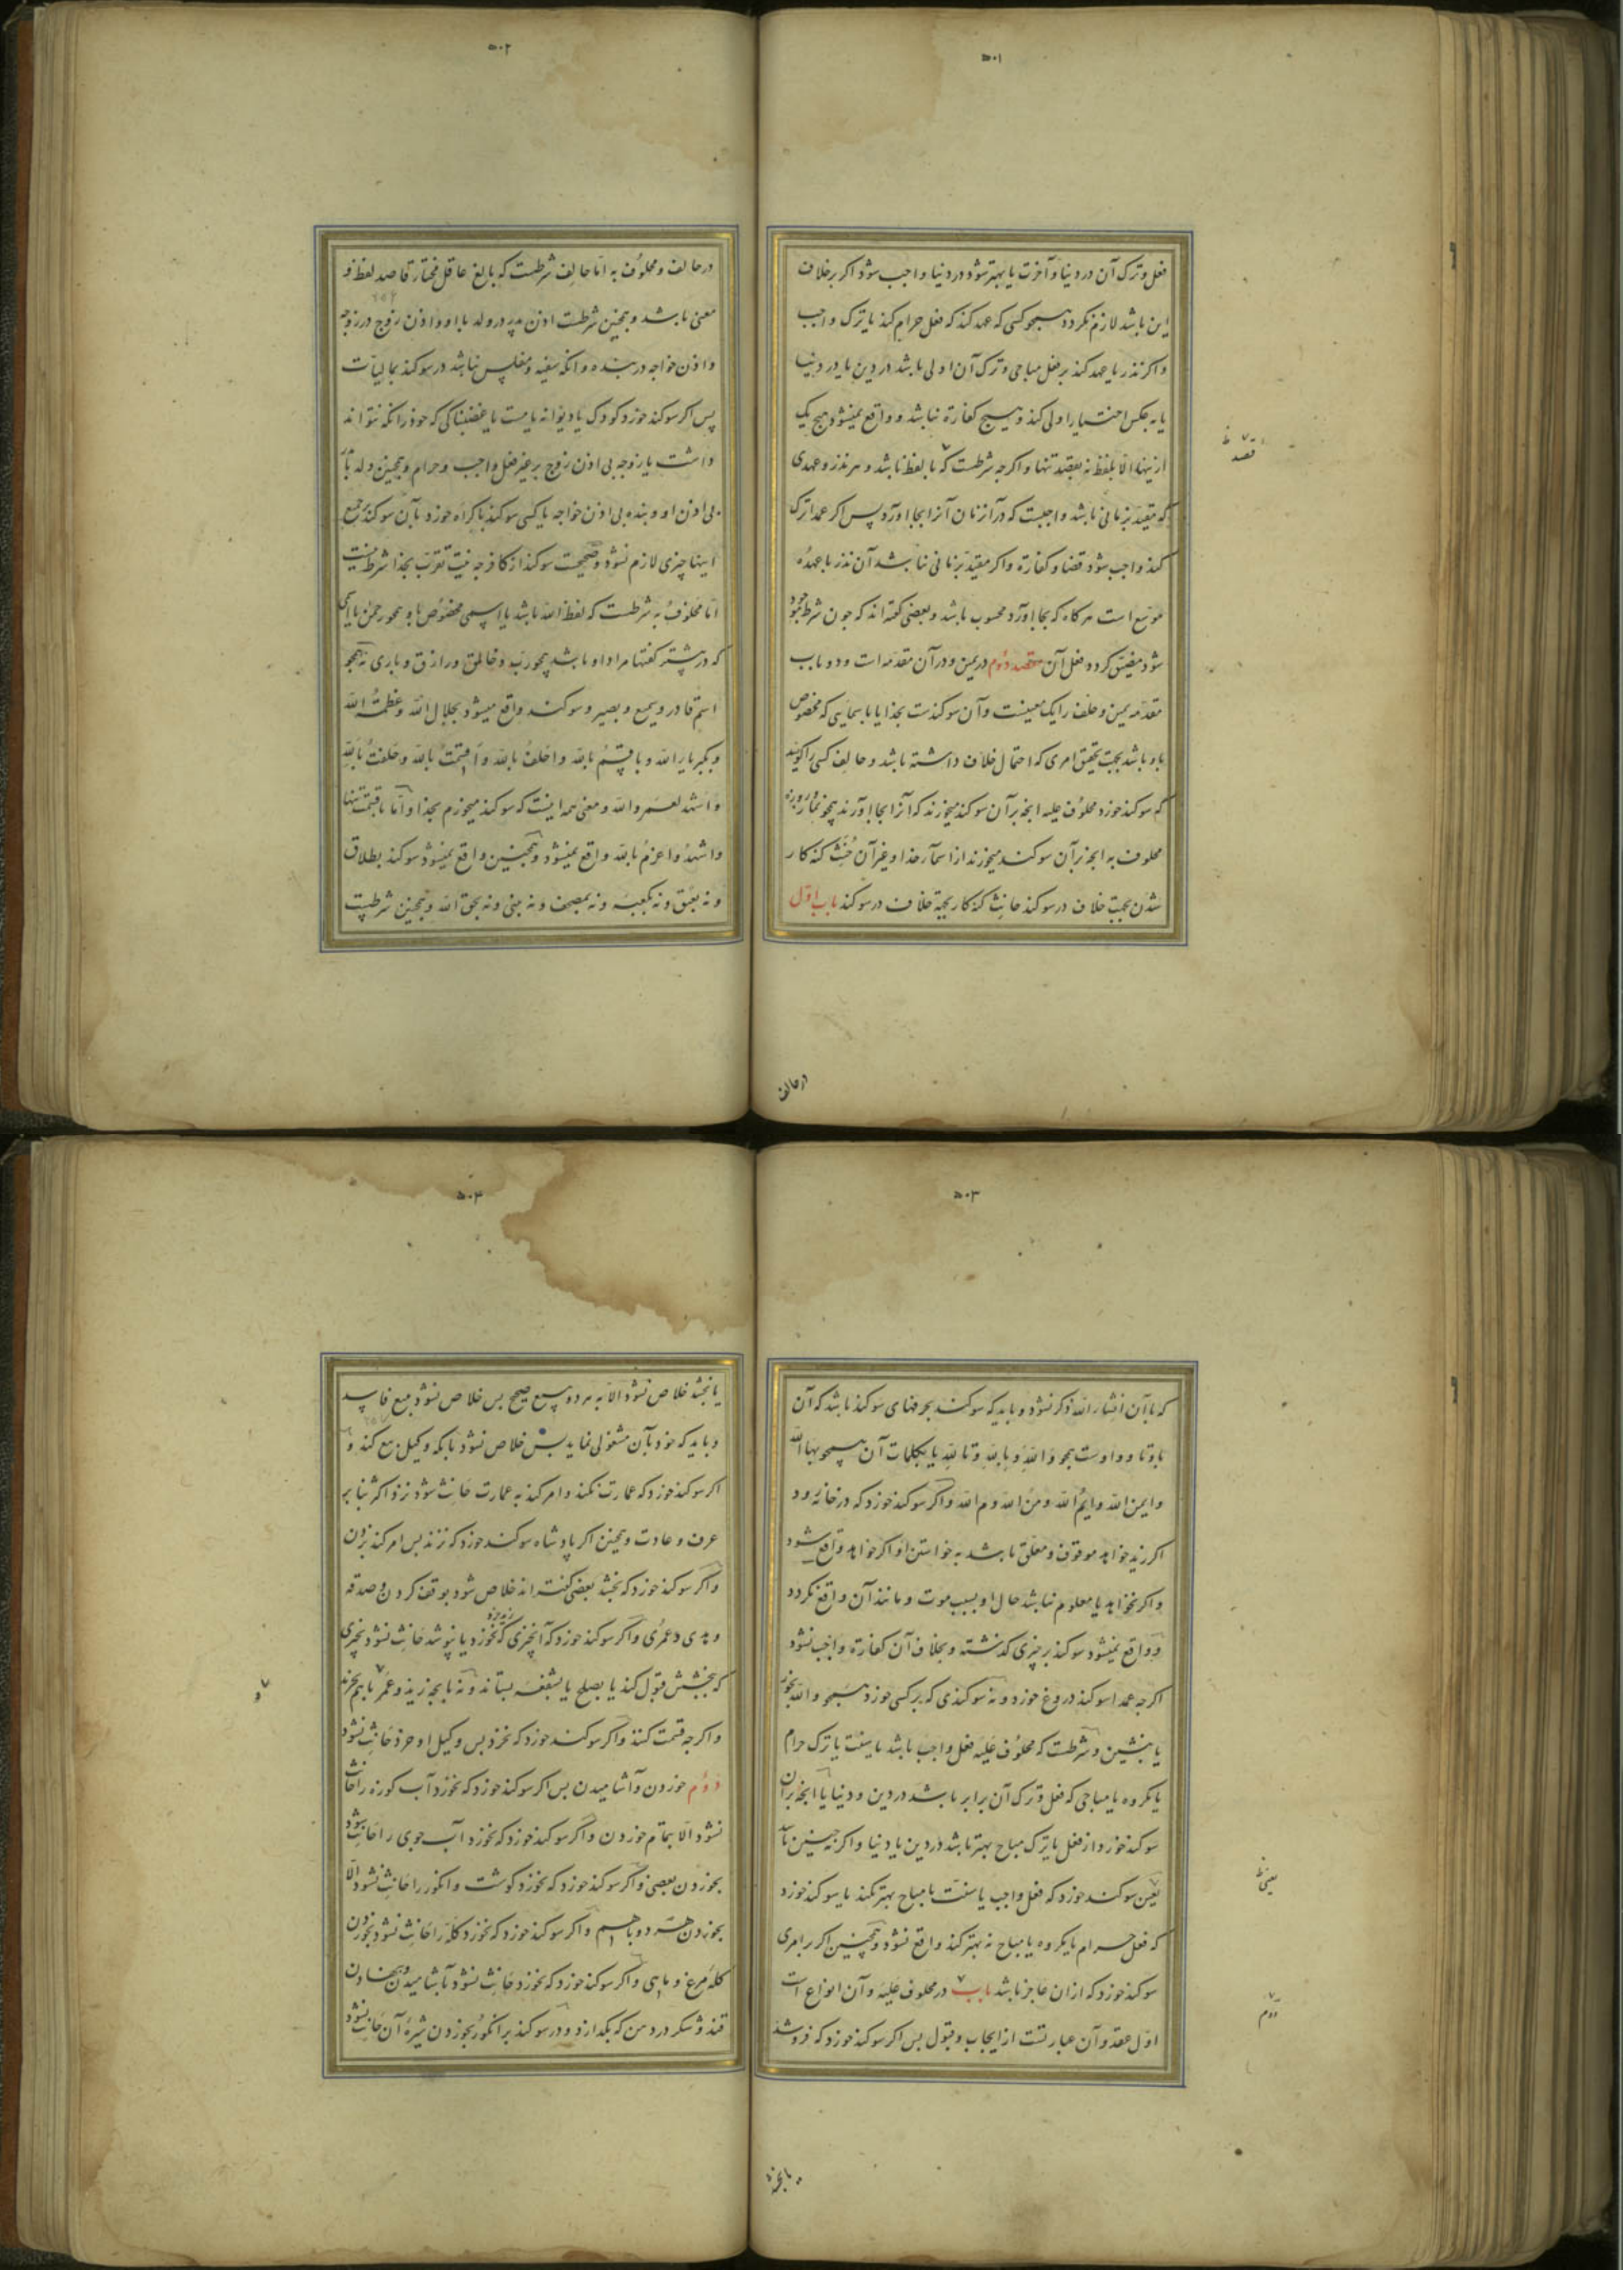 ۵۰۱
فعل و ترک آن در دنیا و آخرت یا بهتر شود در دنیا واجب شود اکر برخلاف
این باشد لازم نکردد همچو کسی که عهد کند که فعل حرام کند یا ترک واجب
و اکر نذر یا عهد کند بر فعل مباحی و ترک آن اولی باشد در دین یا در دنیا
یا به عکس اختیار اولی کند و هیچ کفارة نباشد و واقع نمیشود هیچ یک
ازینها الا بلفظ نه بقصد تنها و اکرچه شرطست که با لفظ باشد و هر نذر و عهدی
که مقید بزمانی باشد واجبست که در آن زمان آنرا بجا آورد پس اکر عمدا ترک
کند واجب شود قضا و کفارة و اکر مقید بزمانی نباشد آن نذر یا عهد
موسع است هر کاه که بجا آورد محسوب باشد و بعضی کفته اند که چون شرط موجود
شود مضیق کردد فعل آن مقصد دوم در یمین و در آن مقدمه ات و دو باب
مقدمه یمین و حلف را یک معنیست و آن سوکندست بخدا یا باسمایی که مخصوص
باو باشد بجهت تحقیق امری که احتمال خلاف داشته باشد و حالف کسی را کویند
که سوکند خورد محلوف علیه انچه بر آن سوکند میخورند که آنرا بجا آورند همچو نماز و روزه
محلوف به انچه بر آن سوکند میخورند از اسماء خدا و غیر آن حنث کنه کار
شدن بجهت خلاف در سوکند حانث کنه کار بجهة خلاف در سوکند باب اول
قصد ظ
در حالف
۵۰۲
در حالف و محلوف به اما حالف شرطست که بالغ عاقل مختار قاصد لفظ و
معنی باشد و همچنین شرطست اذن پدر در ولد با او و اذن زوج در زوجه
و اذن خواجه در بنده و انکه سفیه و مفلس نباشد در سوکند بمالیات
پس اکر سوکند خورد کودک یا دیوانه یا مست یا غضبناکی که خود را نکه نتواند
داشت یا زوجه بی اذن زوج بر غیر فعل واجب و حرام و همچنین ولد با پدر
بی اذن او و بنده بی اذن خواجه یا کسی سوکند باکراه خورد بآن سوکند جمیع
اینها چیزی لازم نشود و صحیحست سوکند از کافر چه نیت تقرب بخدا شرط نیست
اما محلوف به شرطست که لفظ الله باشد یا اسمی مخصوص باو همچو رحمن یا آنچه
که در بیشتر کفتنها مراد او باشد همچو رب و خالق و رازق و باری نه همچو
اسم قادر و سمیع و بصیر و سوکند واقع میشود بجلال الله و عظمت الله
و بکبریاء الله و باقسم بالله و احلف بالله و اقسمت بالله و حلفت بالله
و اشهد لعمر والله و معنی همه اینست که سوکند میخورم بخدا و اما باقسمت تنها
و اشهد و اعزم بالله واقع نمیشود و همچنین واقع نمیشود سوکند بطلاق
و نه بعتق و نه بکعبه و نه بمصحف و نه بنبی و نه بحق الله و همچنین شرطست
۵۰۳
که با آن انشاء الله ذکر نشود و باید که سوکند بحرفهای سوکند باشد که آن
با و تا و واوست همچو والله و بالله و تالله یا بکلمات آن همچو بها الله
و ایمن الله و ایم الله و من الله و م الله و اکر سوکند خورد که در خانه رود
اکر زید خواهد موقوف و معلق باشد به خواستن او اکر خواهد واقع شود
و اکر نخواهد یا معلوم نباشد حال او بسبب موت و مانند آن واقع نکردد
و واقع نمیشود سوکند بر چیزی کذشته و بخلاف آن کفارة واجب نشود
اکرچه عمدا سوکند دروغ خورد و نه سوکندی که بر کسی خورد همچو والله بخور
یا بنشین و شرطست که محلوف علیه فعل واجب باشد یا سنت یا ترک حرام
یا مکروه یا مباحی که فعل و ترک آن برابر باشد در دین و دنیا یا انچه بر آن
سوکند خورد از فعل یا ترک مباح بهتر باشد در دین یا دنیا و اکر نه چنین باشد
یعنی سوکند خورد که فعل واجب یا سنت یا مباح بهتر نکند یا سوکند خورد
که فعل حرام یا مکروه یا مباح نه بهتر کند واقع نشود و همچنین اکر بر امری
سوکند خورد که از آن عاجز باشد باب در محلوف علیه و آن انواع است
اول عقد و آن عبارتست از ایجاب و قبول پس اکر سوکند خورد که فروشد
یعنی ظ
دوم
۵۰۴
یا بخشد خلاص نشود الا به هر دو بیع صحیح پس خلاص نشود ببیع فاسد
و باید که خود بآن مشغولی نماید پس خلاص نشود بانکه وکیل بیع کند و
اکر سوکند خورد که عمارت نکند و امر کند به عمارت حانث شود نزد اکثر بنا بر
عرف و عادت و همچنین اکر پادشاه سوکند خورد که نزند پس امر کند بزدن
و اکر سوکند خورد که نبخشد بعضی کفته اند خلاص شود بوقف کردن و صدقه
و هدی و عمری و اکر سوکند خورد که آنچیزی که زید خرد نخورد یا نپوشد حانث نشود بچیزی
که ببخشش قبول کند یا بصلح یا بشفعه بستاند و نه بانچه زید و عمر با هم بخرند
و اکرچه قسمت کنند و اکر سوکند خورد که نخرد پس وکیل او خرد حانث نشود
دوم خوردن و آشامیدن پس اکر سوکند خورد که نخورد آب کوزه را حانث
نشود الا بتمام خوردن و اکر سوکند خورد که نخورد آب جوی را حانث شود
بخوردن بعضی و اکر سوکند خورد که نخورد کوشت و انکور را حانث نشود الا
بخوردن هر دو با هم و اکر سوکند خورد که نخورد کله را حانث نشود بخوردن
کله مرغ و ماهی و اکر سوکند خورد که نخورد حانث نشود بآشامیدن و بنهادن
قند و شکر در دهن که بکدازد و در سوکند بر انکور بخوردن شیره آن حانث نشود
و